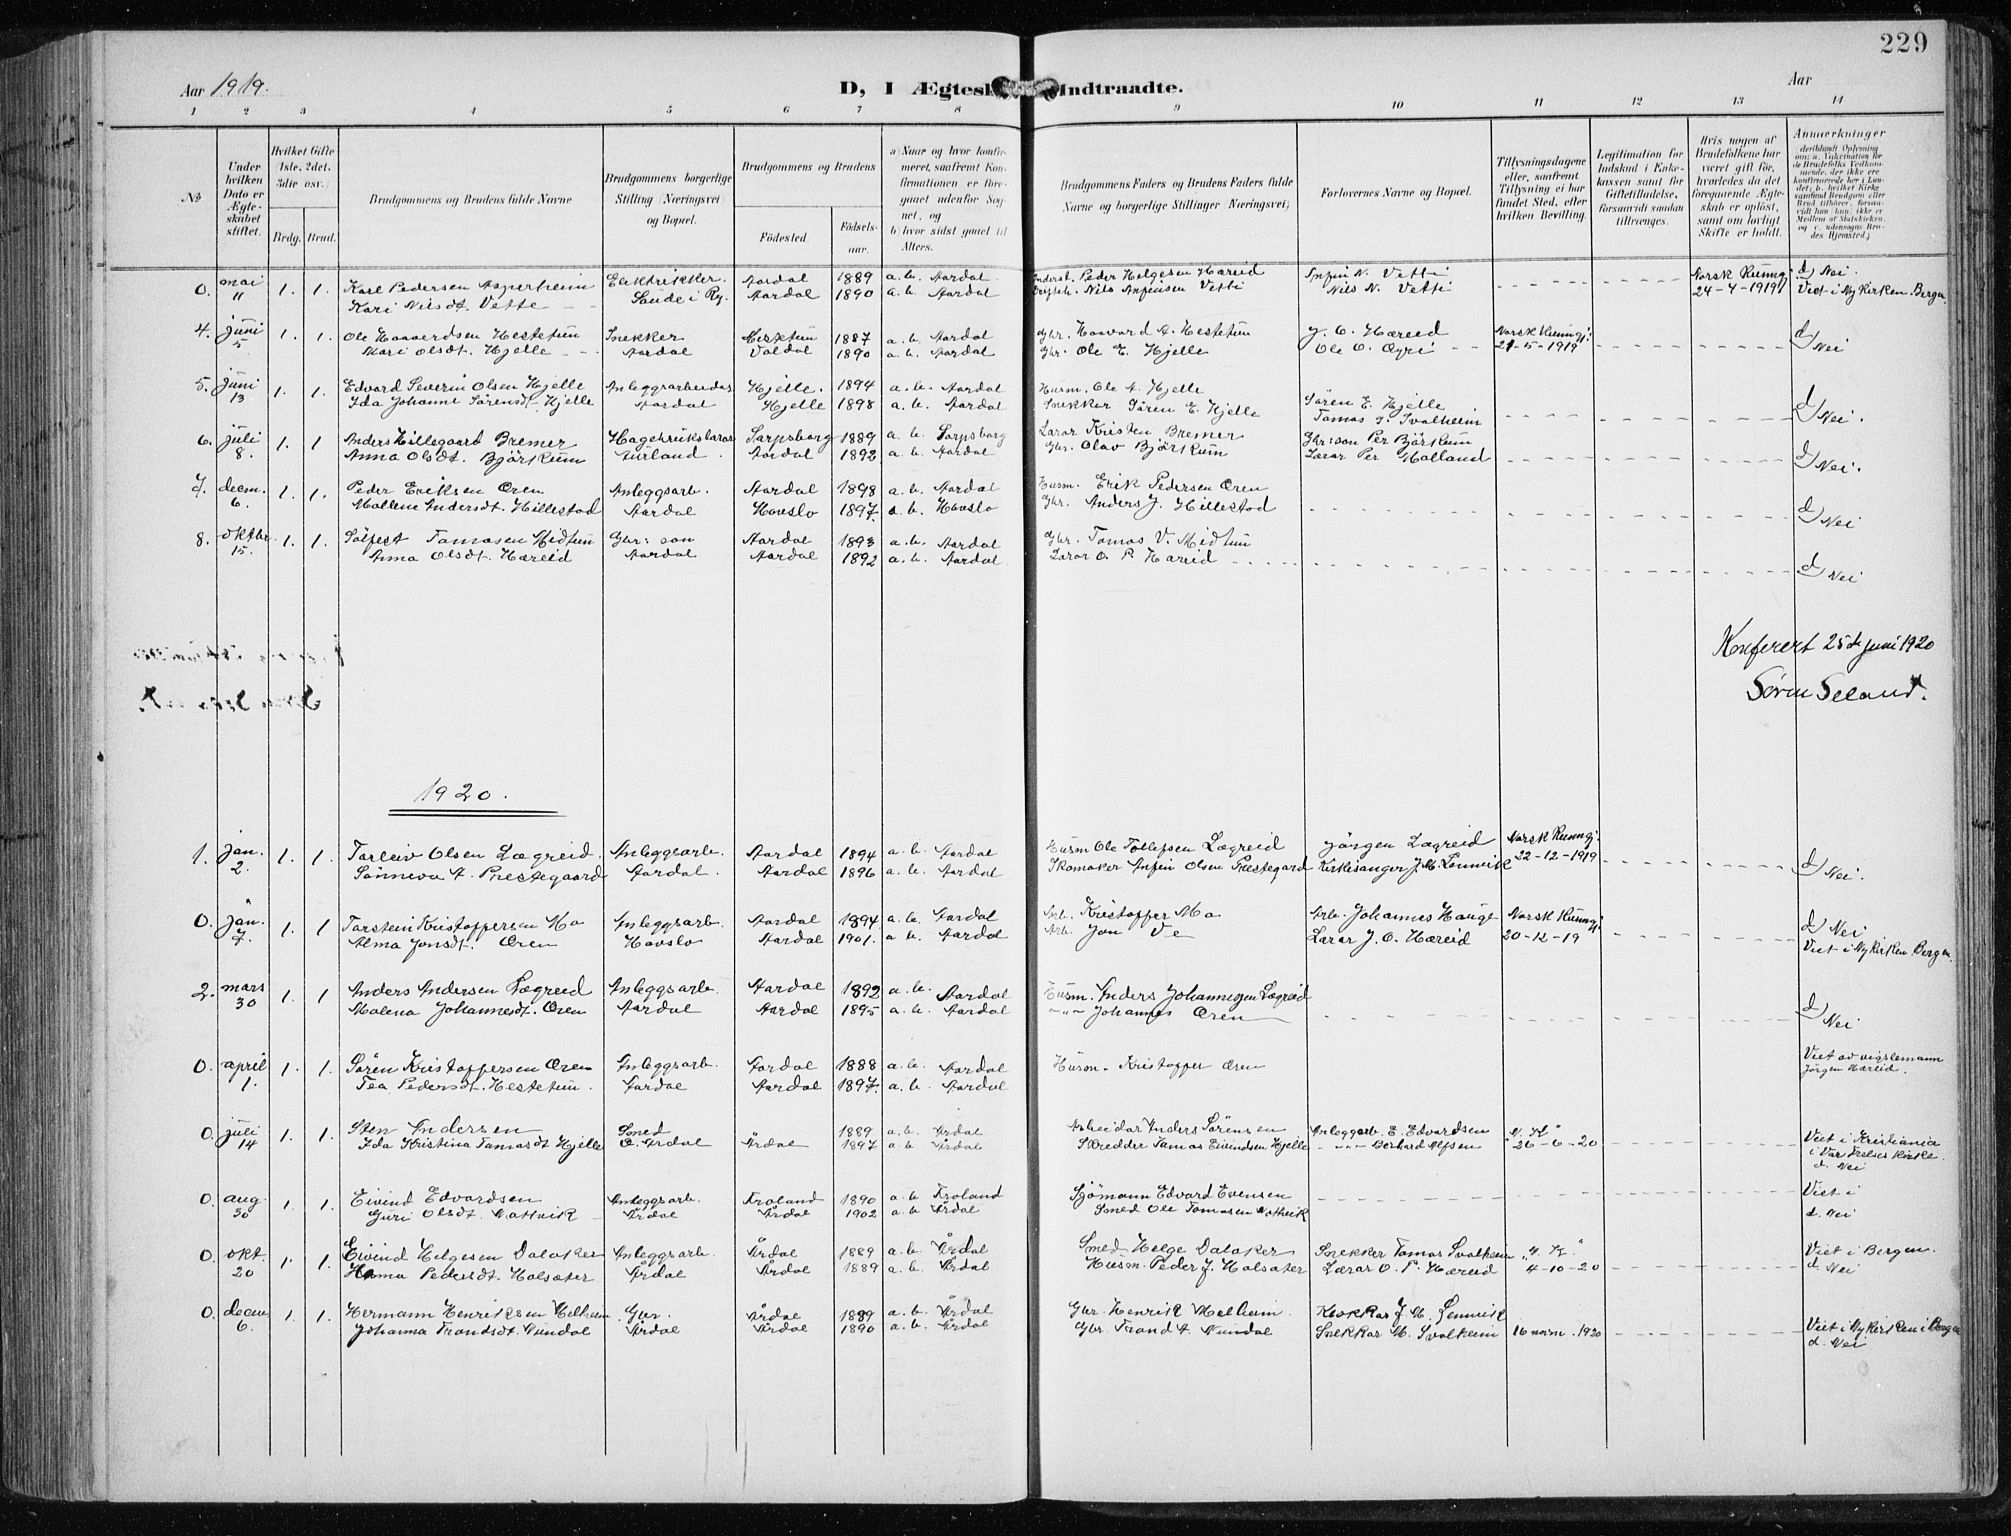 229
Aar 1919.
D, I Ægtesk Indtraadte.
Aar
1 2 3 4 5 6 7 8 9 10 11 12 13 14
No
Under hvilken Dato er Ægteskabet stiftet.
Hvilket Gifte 1ste, 2det, 3die osv.
Brdg. Brud.
Brudgommens og Brudens fulde Navne
Brudgommens borgerlige Stilling (Næringsvei) og Bopæl.
Brudgommens og Brudens
Födested.
Födselsaar.
a) Naar og hvor konfirmeret, saafremt Konfirmationen er foregaaet udenfor Sognet, og
b) hvor sidst gaaet til Alters.
Brudgommens Faders og Brudens Faders fulde Navne og borgerlige Stillinger (Næringsvei)
Forlovernes Navne og Bopæl.
Tillysningsdagene eller, saafremt Tillysning ei har fundet Sted, efter hvilken Bevilling.
Legitimation for Indskud i Enkekassen samt for Giftetilladelse, forsaavidt saadan tiltrænges.
Hvis nogen af Brudefolkene har været gift för, hvorledes da det foregaaende Ægteskab er oplöst, samt om lovligt Skifte er holdt.
Anmærkninger
0. mai 11 1. 1. Karl Pedersen Asperheim Elektrikker Aardal 1889 a.b. Aardal Peder Helgesen Hæreid Anfin N. Vetti Norsk Kunng. d) Nei.
Kari Nilsdt. Vette Saude i Ry. Aardal 1890 a.b. Aardal Nils Anfinsen Vetti Nils N. Vetti 24-4-1919 Viet i Nykirken. Bergen
4. juni 5 1. 1. Ole Haavardsen Hestetun Snekker Hestetun 1887 a.b. Aardal Gbr. Haavard A. Hestetun J. O. Hæreid Norsk Kunng: d)
Mari Olsdt. Hjelle Aardal Valdal 1890 a.b. Aardal Gbr. Ole E. Hjelle Ole O. Øyri 21-5-1919 Nei
5. juni 13 1. 1. Edvard Severin Olsen Hjelle Anleggsarbeidar Hjelle. 1894 a.b. Aardal Husm. Ole A. Hjelle Sören E. Hjelle d)
Ida Johanne Sörensdt. Hjelle Aardal Hjelle 1898 a.b. Aardal Snekker Sören E. Hjelle Tamas J. Svalheim Nei.
6. juli 8. 1. 1 Anders Hillegaard Bremer Hagebrukslærar Sarpsborg 1889 a.b. Sarpsborg Lærar Kristen Bremer Gbr:son Per Björkum d)
Anna Olsdt. Björkum Aurland. Aardal 1892 a.b. Aardal Gbr. Olav Björkum Lærar Per Molland Nei.
7. decm. 6. 1. 1. Peder Eriksen Øren Anleggsarb. Aardal 1898 a.b. Aardal Husm. Erik Pedersen Øren d)
Mallene Andersdt. Hillestad Aardal Havslo 1897. a.b. Havslo Gbr. Anders J. Hillestad Nei
8. oktbr 15. 1. 1. Solfest Tamasen Midtun Gbr: son Aardal 1893 a.b. Aardal Gbr. Tamas V. Midtun d)
Anna Olsdt. Hæreid Aardal Aardal 1892 a.b. Aardal Lærar O. P. Hæreid Nei
Konferert 25de juni 1920
Sören Seland.
1920.
1. jan. 2. 1. 1. Tarleiv Olsen Lægreid. Anleggsarb. Aardal 1894 a.b. Aardal Husm Ole Tollefsen Lægreid Jörgen Lægreid Norsk Kunng: d)
Sönneva A. Prestegaard Aardal. Aardal 1896 a.b. Aardal Skomaker Anfin Olsen Prestegard Kirkesanger J. M. Lænnvik 22-12-1919 Nei.
0. jan. 7. 1. 1 Tarstein Kristoffersen Mo Anleggsarb. Aardal 1894. a.b. Aardal Arb. Kristoffer Mo Arb. Johannes Hauge Norsk Kunng: d) Nei
Alma Jonsdt. Øren Havslo Aardal 1901. a.b. Aardal Arb. Jon Ve Lærar J. O. Hæreid 20-12-19 Viet i Nykirken. Bergen
2. mars 30 1. 1 Anders Andersen Lægreid Anleggsarb. Aardal 1892 a.b. Aardal Husm. Anders Johannessen Lægreid d)
Malena Johannesdt. Øren Aardal Aardal 1895 a.b. Aardal -"- Johannes Øren Nei
0. april 1. 1. 1. Sören Kristoffersen Øren Anleggsarb. Aardal 1888 a.b. Aardal Husm. Kristoffer Øren Viet av vigslemann
Tea Pedersdt. Hestetun. Aardal Aardal 1897. a.b. Aardal Jörgen Hæreid.
0. juli 14 1. 1. Sten Andersen Smed 1889 a.b. Årdal Arbeidar Anders Sörensen Anleggsarb. E. Edvardsen N. K" Viet i Kristiania
Ida Kristina Tamasdt Hjelle O. Årdal Årdal 1897 a.b. Årdal Skredder Tamas Eivindsen Hjelle -"- Berhard Alfsen 26-6-20 i Vår Frelses Kirke. d. Nei
0. aug 30 1. 1. Eivind Edvardsen Anleggsarb. Froland 1890 a.b. Froland Sjömann Edvard Evensen Viet i
Guri Olsdt. Nattvik Årdal Årdal 1902 a.b. Årdal Smed Ole Tamasen Nattvik d. Nei
0. okt. 20 1. 1. Eivind Helgesen Dalaker Anleggsarb. Årdal 1889 a.b. Årdal Smed Helge Dalaker Snekker Tamas Svalheim "N. K." Viet i Bergen.
Anna Pedersdt. Holsæter Årdal Årdal 1889 a.b. Årdal Husm. Peder J. Holsæter Lærar O. P. Hæreid 4-10-20 d. Nei
0. decm 6. 1 1 Hermann Henriksen Melheim Gbr. Årdal 1889 a.b. Årdal Gbr. Henrik Melheim. Klokkar J. M. Lænnvik Viet i Nykirken i Bergen
Johanna Trondsdt. Nundal Årdal Årdal 1890 a.b. Årdal Gbr. Trond A. Nundal Snekkar M. Svalheim 16 novm. 1920 d. Nei